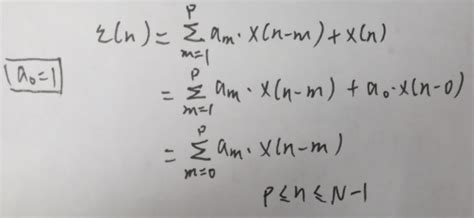 ε(n) = Σ_{m=1}^{P} a_m · x(n-m) + x(n)
a_0 = 1
= Σ_{m=1}^{P} a_m · x(n-m) + a_0 · x(n-0)
= Σ_{m=0}^{P} a_m · x(n-m)
P ≤ n ≤ N-1